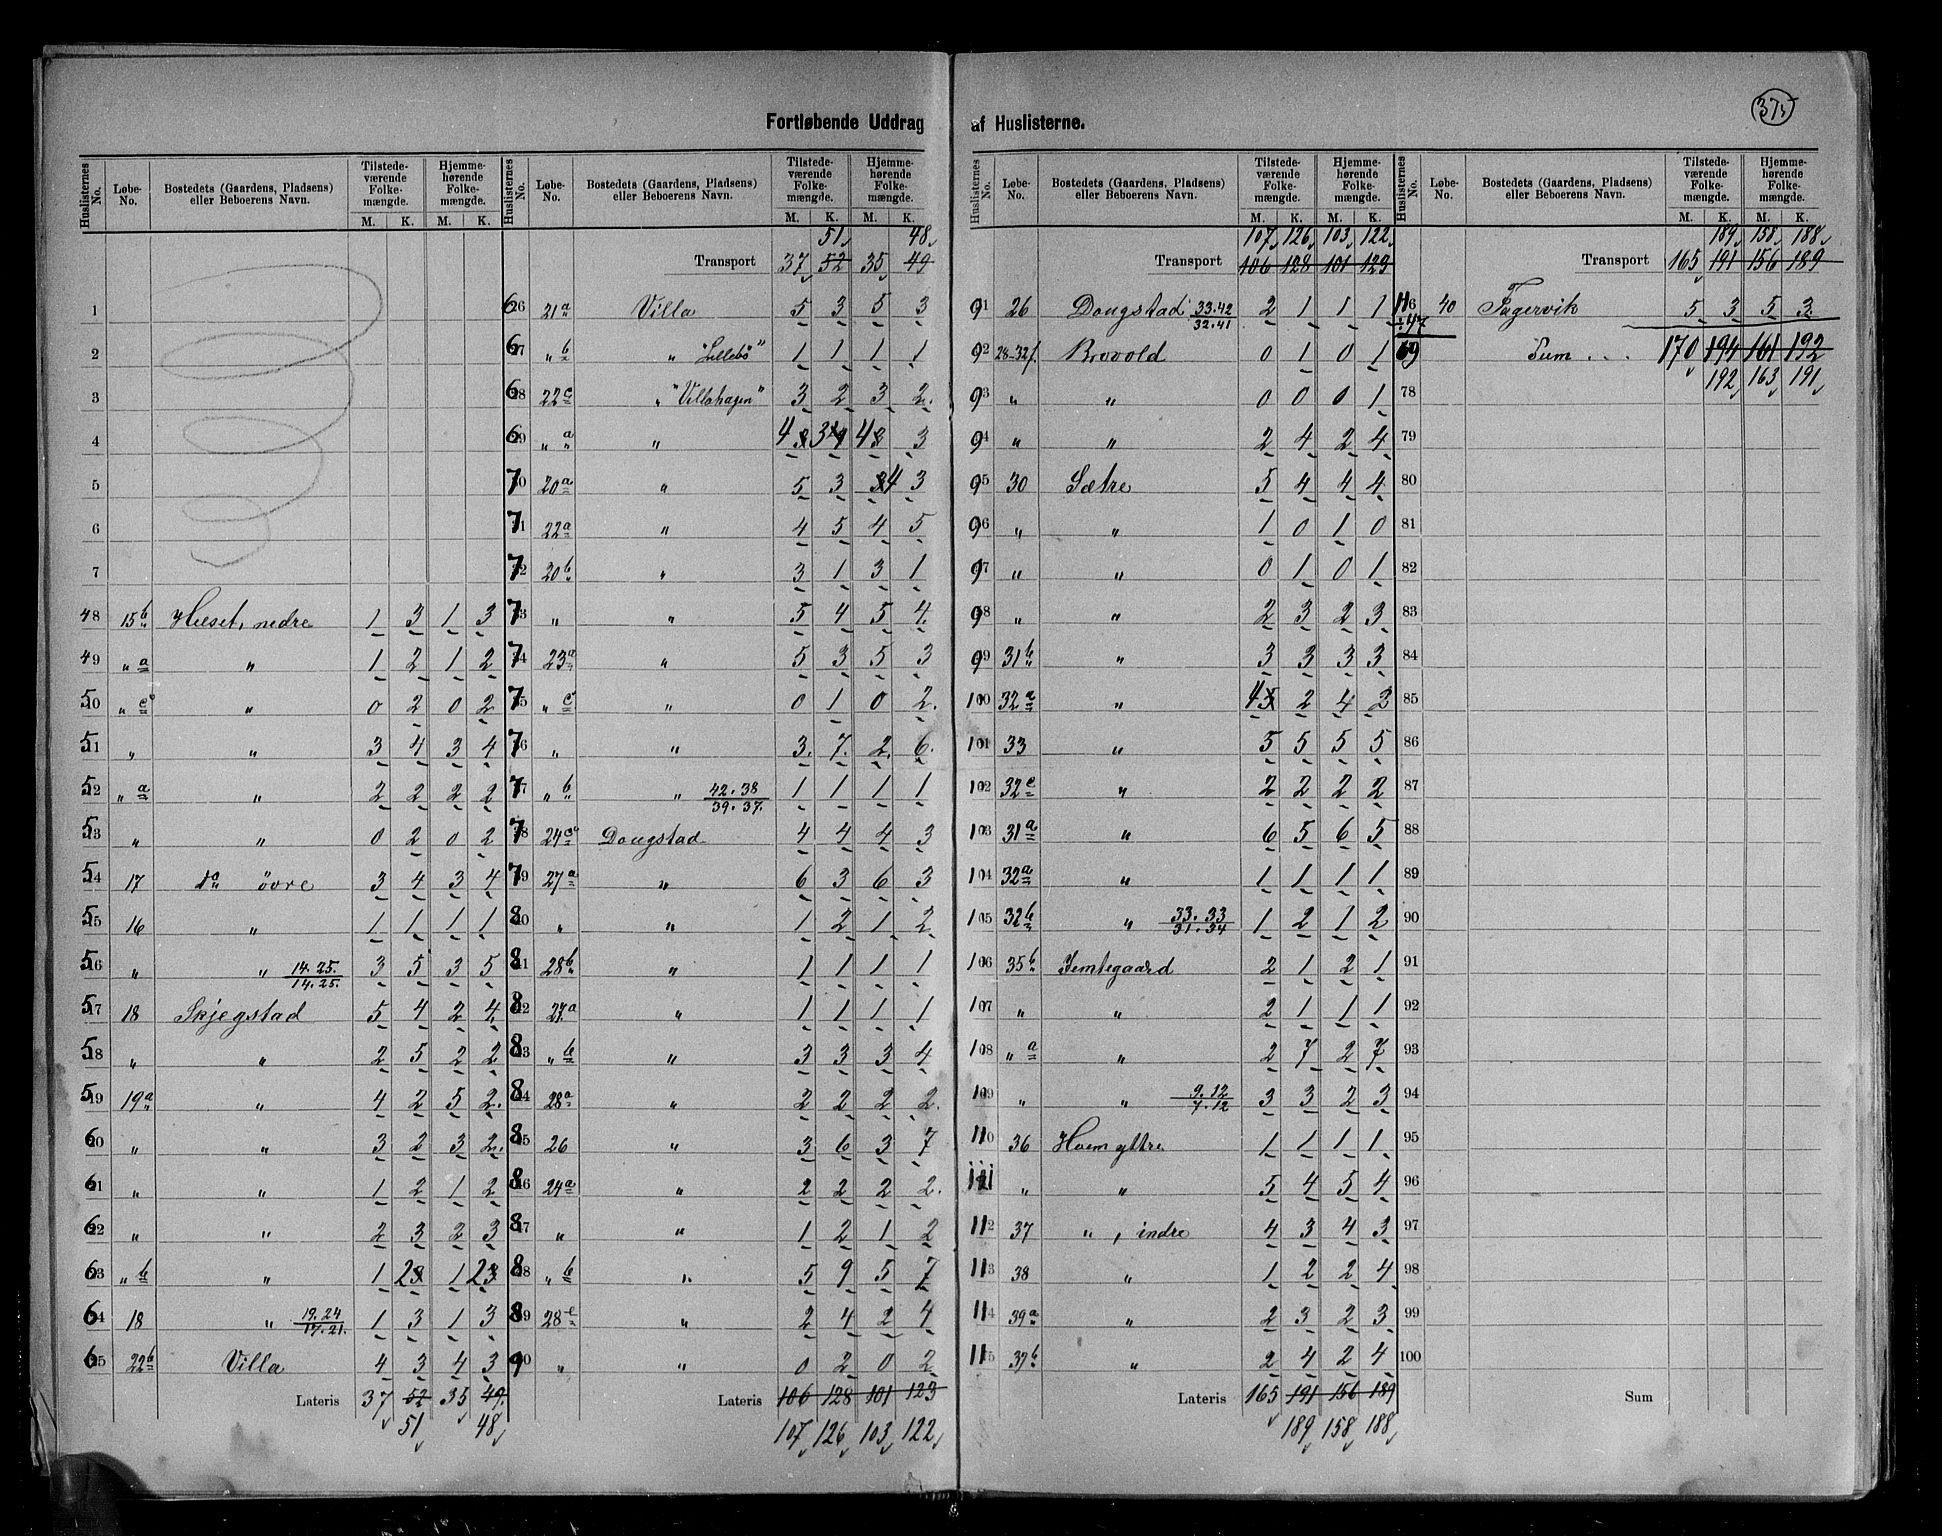 375
Fortløbende Uddrag af Huslisterne.
Huslisternes No. Løbe-No. Bostedets (Gaardens, Pladsens) eller Beboerens Navn. Tilstedeværende Folkemængde. Hjemmehørende Folkemængde. M. K. M. K.
1
2
3
4
5
6
7
48 15 b Hæset, nedre 1 3 1 3
49 " a " 1 2 1 2
50 " c " 0 2 0 2
51 " " 3 4 3 4
52 " a " 2 2 2 2
53 " " 0 2 0 2
54 17 do øvre 3 4 3 4
55 16 " 1 1 1 1
56 " " 14.25. 14.25. 3 5 3 5
57 18 Skjegstad 5 4 2 4
58 " " 2 5 2 2
59 19 a " 4 2 5 2
60 " " 3 2 3 2
61 " " 1 2 1 2
62 " " 2 3 2 3
63 " b " 1 2 1 2
64 18 " 19.24 17.21. 1 3 1 3
65 22 b Villa 4 3 4 3
Lateris 37 52 35 49
51 48
Huslisternes No. Løbe-No. Bostedets (Gaardens, Pladsens) eller Beboerens Navn. Tilstedeværende Folkemængde. Hjemmehørende Folkemængde. M. K. M. K.
51 48
Transport 37 52 35 49
66 21 a Villa 5 3 5 3
67 " b " "Lillebo" 1 1 1 1
68 22 c " "Villahagen" 3 2 3 2
69 " a " 4 3 4 3
70 20 a " 5 3 4 3
71 22 a " 4 5 4 5
72 20 b " 3 1 3 1
73 " " 5 4 5 4
74 23 a " 5 3 5 3
75 " c " 0 1 0 2
76 " " 3 7 2 6
77 " b " 42.38 39.37. 1 1 1 1
78 24 c Dougstad 4 4 4 3
79 27 a " 6 3 6 3
80 " " 1 2 1 2
81 28 b " 1 1 1 1
82 27 a " 1 1 1 1
83 " b " 3 3 3 4
84 28 a " 2 2 2 2
85 26 " 3 6 3 7
86 24 a " 2 2 2 2
87 " " 1 2 1 2
88 " b " 5 9 5 7
89 28 c " 2 4 2 4
90 " " 0 2 0 2
Lateris 106 128 101 123
107 126 103 122
Huslisternes No. Løbe-No. Bostedets (Gaardens, Pladsens) eller Beboerens Navn. Tilstedeværende Folkemængde. Hjemmehørende Folkemængde. M. K. M. K.
107 126 103 122
Transport 106 128 101 123
91 26 Dougstad 33.42 32.41 2 1 1 1
92 28-32 f. Brovold 0 1 0 1
93 " " 0 0 0 1
94 " " 2 4 2 4
95 30 Sætre 5 4 4 4
96 " " 1 0 1 0
97 " " 0 1 0 1
98 " " 2 3 2 3
99 31 b " 3 3 3 3
100 32 a " 4 2 4 2
101 33 " 5 5 5 5
102 32 c " 2 2 2 2
103 31 a " 6 5 6 5
104 32 a " 1 1 1 1
105 32 b " 33.33 31.34 1 2 1 2
106 35 b Jemtegaard 2 1 2 1
107 " " 2 1 1 1
108 " a " 2 7 2 7
109 " " 9.12 7.12 3 3 2 3
110 36 Hoem yttre 1 1 1 1
111 " " 5 4 5 4
112 37 " , indre 4 3 4 3
113 38 " 1 2 2 4
114 39 a " 2 3 2 3
115 39 b " 2 4 2 4
Lateris 165 191 156 189
189 158 188
Huslisternes No. Løbe-No. Bostedets (Gaardens, Pladsens) eller Beboerens Navn. Tilstedeværende Folkemængde. Hjemmehørende Folkemængde. M. K. M. K.
189 158 188
Transport 165 191 156 189
116 40 Fagervik 5 3 5 3
÷ 47
69 Sum . . . 170 194 161 192
192 163 191
78
79
80
81
82
83
84
85
86
87
88
89
90
91
92
93
94
95
96
97
98
99
100
Sum